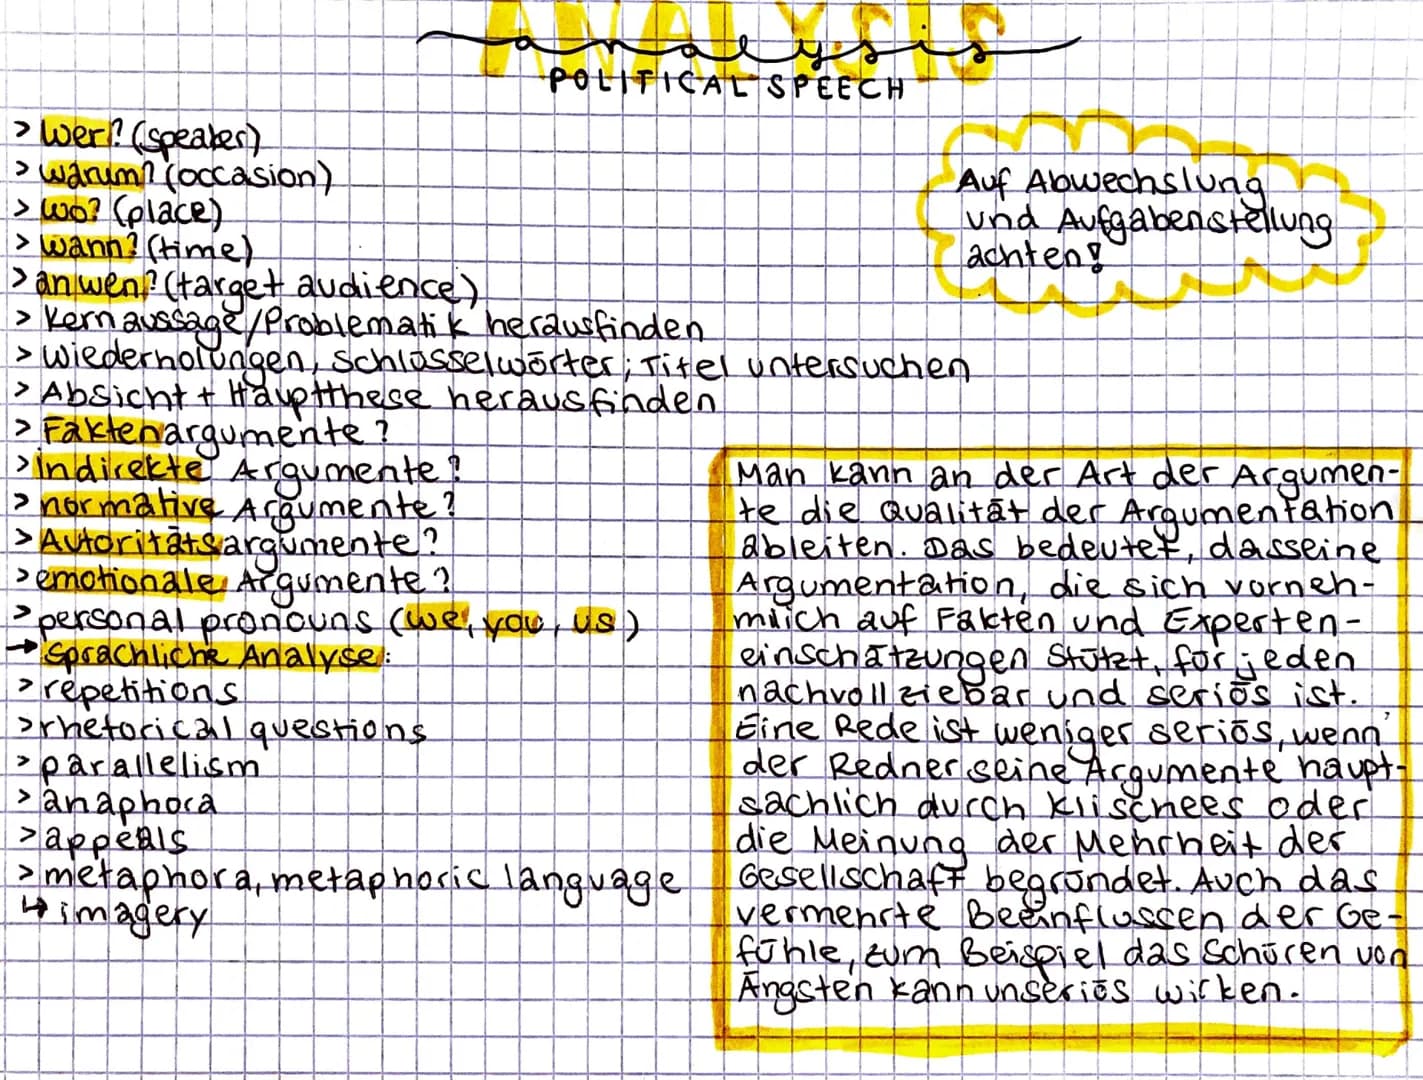 ANALYSIS
analysis
POLITICAL SPEECH
> wer? (speaker)
> warum? (occasion)
> wo? (place)
> wann? (time)
> an wen? (target audience)
> Kernaussage/Problematik herausfinden
> wiederholungen, Schlüsselwörter; Titel untersuchen
> Absicht + Hauptthese herausfinden
> Faktenargumente?
> indirekte Argumente?
> normative Argumente?
> Autoritätsargumente?
> emotionale Argumente?
> personal pronouns (we, you, us)
→ Sprachliche Analyse:
> repetitions
> rhetorical questions
> parallelism
> anaphora
> appeals
> metaphora, metaphoric language
↳ imagery
Auf Abwechslung
und Aufgabenstellung
achten!
Man kann an der Art der Argumen-
te die Qualität der Argumentation
ableiten. Das bedeutet, dasseine
Argumentation, die sich vorneh-
mlich auf Fakten und Experten-
einschätzungen stützt, für jeden
nachvollziebar und seriös ist.
Eine Rede ist weniger seriös, wenn
der Redner seine Argumente haupt-
sächlich durch Klischees oder
die Meinung der Mehrheit der
Gesellschaft begründet. Auch das
vermehrte Beeinflussen der Ge-
fühle, zum Beispiel das Schüren von
Ängsten kann unseriös wirken.